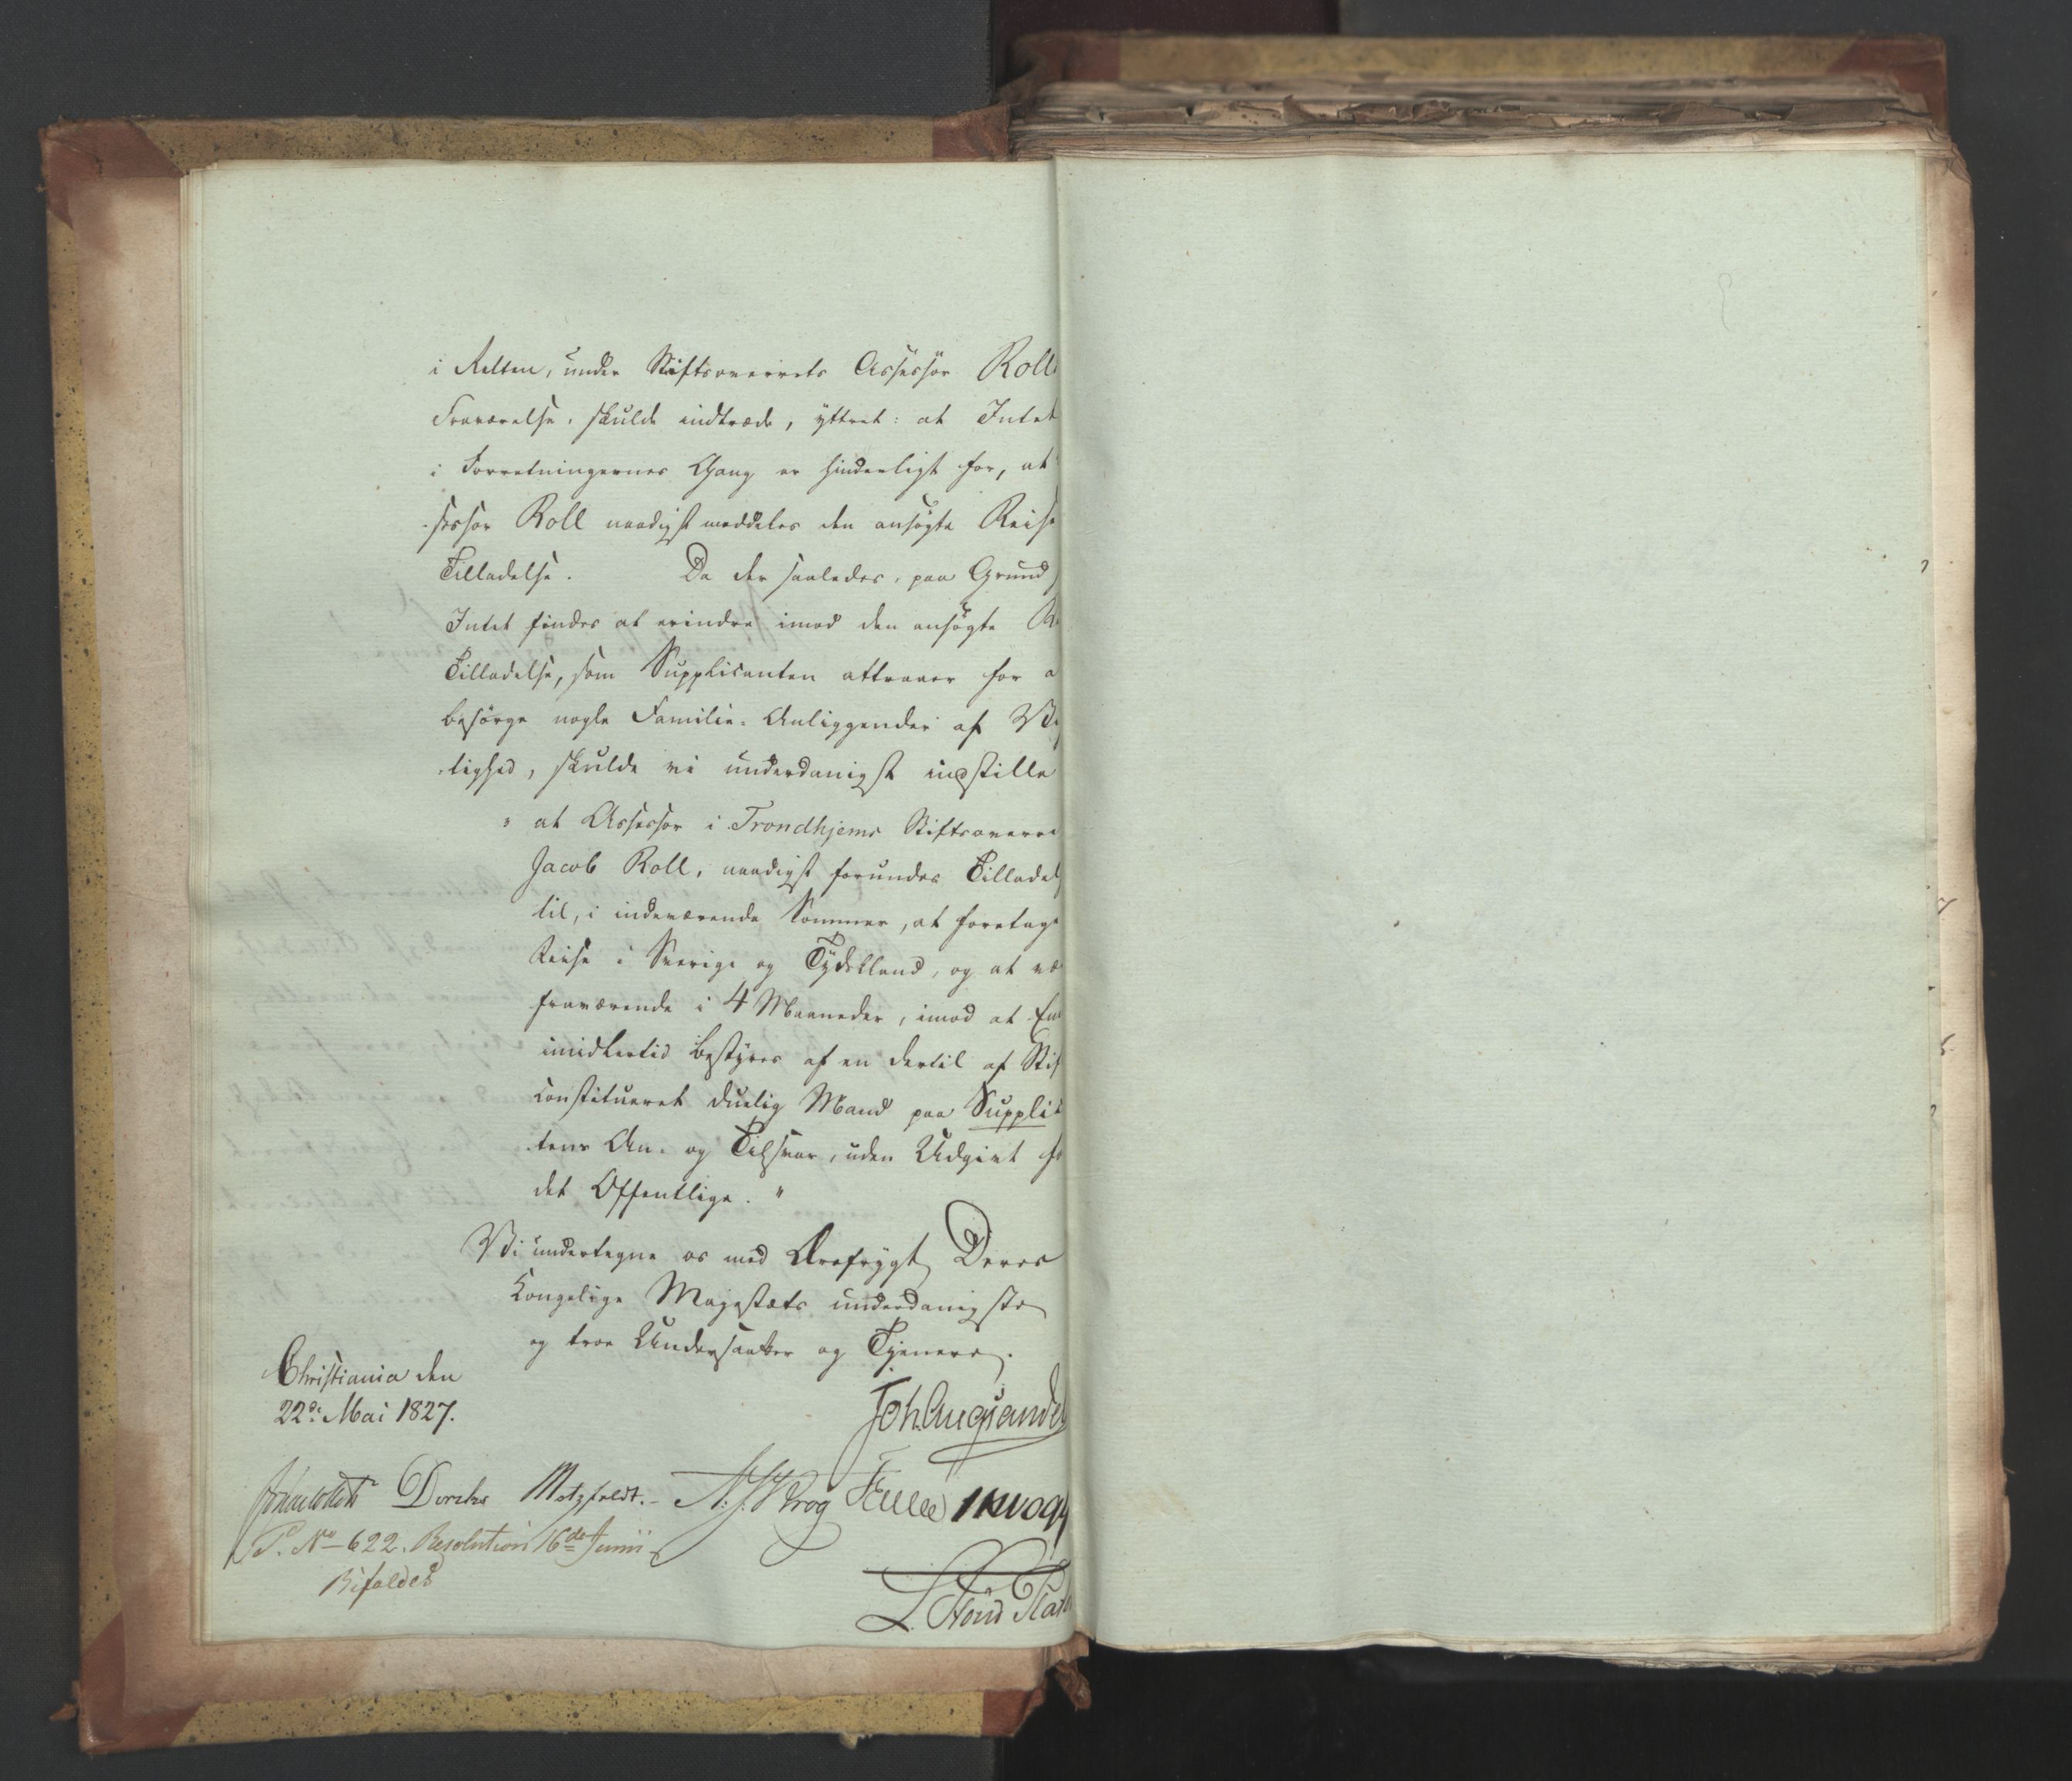 i Retten, under Stiftsoverrets Assessor Roll
Fraværelse, skulde indtræde, yttret: at Intet
i Forretningernes Gang er hinderligt for, at
-sessor Roll naadigst meddeles den ansøgte Reise
Tilladelse. Da der saaledes, paa Grund
Intet findes at erindre imod den ansøgte
Tilladelse, som Supplicanten attraaer for
besørge nogle Familie-Anliggender af
-lighed, skulde vi underdanigst indstille
" at Assessor i Trondhjems Stiftsoverre
Jacob Roll, naadigst forundes Tilladel
til, i indeværende Sommer, at foretage
Reise i Sverige og Tydskland, og at væ
fraværende i 4 Maaneder, imod at Em
imidlertid bestyres af en dertil af Stif
constitueret duelig Mand paa Supplic
tens An- og Tilsvar, uden Udgivt fo
det Offentlige. "
Vi undertegne os med Ærefrygt Deres
Kongelige Majestæts underdanigste
og troe Undersaatter og Tjenere.
Christiania den
22de Mai 1827.
Joh. Aug. Sande
Diriks Motzfeldt. A. J. Krog
P. No 622. Resolution 16de Junii
Bifaldes
L. Stoud Plat